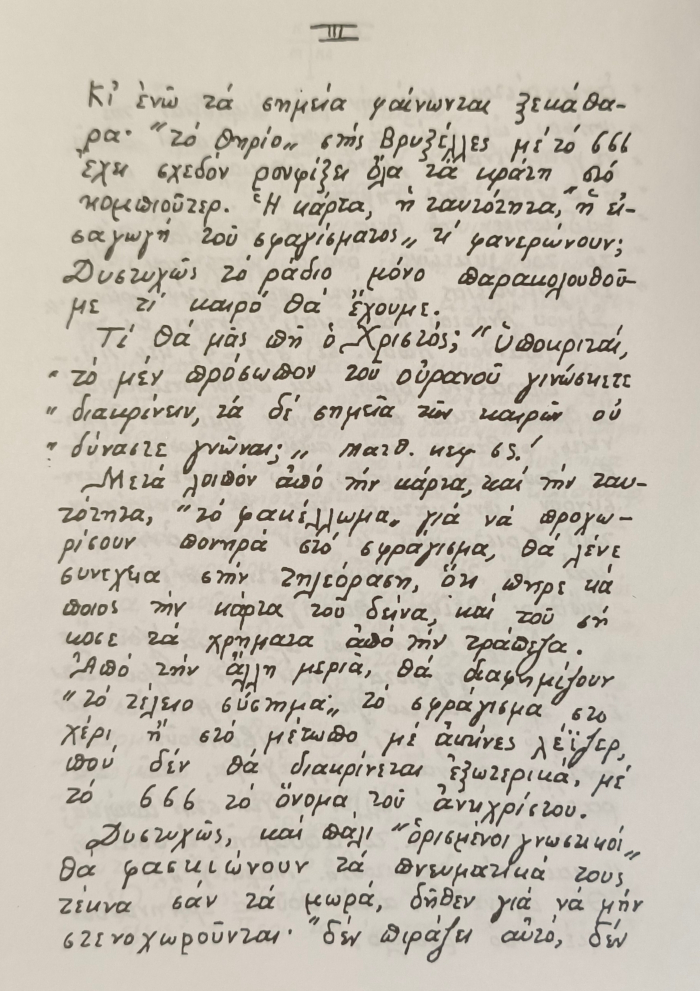 III
Κι' ἐνῶ τά σημεία φαίνωνται ξεκάθα-
ρα· "τό θηρίο„ στίς Βρυξέλλες μέ τό 666
ἔχει σχεδόν ρουφίξει ὅλα τά κράτη στό
κομπιοῦτερ. Ἡ κάρτα, ἡ ταυτότητα, "ἡ εἰ-
σαγωγή τοῦ σφαγίσματος„ τί φανερώνουν;
Δυστυχῶς τό ράδιο μόνο παρακολουθοῦ-
με τί καιρό θά ἔχουμε.
Τί θά μᾶς πῆ ὁ Χριστός; "Ὑποκριταί,
" τό μέν πρόσωπον τοῦ οὐρανοῦ γινώσκετε
" διακρίνειν, τά δέ σημεῖα τῶν καιρῶν οὐ
" δύναστε γνῶναι; „ Ματθ. κεφ ΙΣΤ.'
Μετά λοιπόν ἀπό τήν κάρτα, καί τήν ταυ-
τότητα, "τό φακέλλωμα„ γιά νά προχω-
ρίσουν πονηρά στό σφράγισμα, θά λένε
συνεχεια στήν τηλεόραση, ὅτι πηρε κά
ποιος τήν κάρτα τοῦ δείνα, καί τοῦ σή
κοσε τά χρηματα ἀπό τήν τράπεζα.
Ἀπό τήν ἄλλη μεριά, θά διαφημίζουν
"τό τέλειο σύστημα„ τό σφράγισμα στο
χέρι ἤ στό μέτωπο μέ ἀκτίνες λέϊζερ,
πού δέν θά διακρίνεται ἐξωτερικά, μέ
τό 666 τό ὄνομα τοῦ ἀντιχρίστου.
Δυστυχῶς, καί πάλι "ὁρισμένοι γνωστικοί„
θά φασκιώνουν τά πνευματικά τους
τέκνα σάν τά μωρά, δῆθεν γιά νά μήν
στενοχωροῦνται· "δέν πιράζει αὐτό, δέν